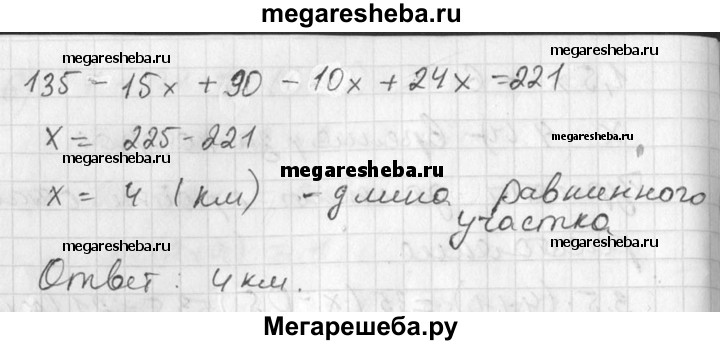 megaresheba.ru
megaresheba.ru megaresheba.ru
135 - 15x + 90 - 10x + 24x = 221
x = 225 - 221
megaresheba.ru megaresheba.ru
megaresheba.ru
x = 4 (км) - длина равнинного
участка
megaresheba.ru megaresheba.ru
Ответ: 4 км.
Мегарешеба.ру